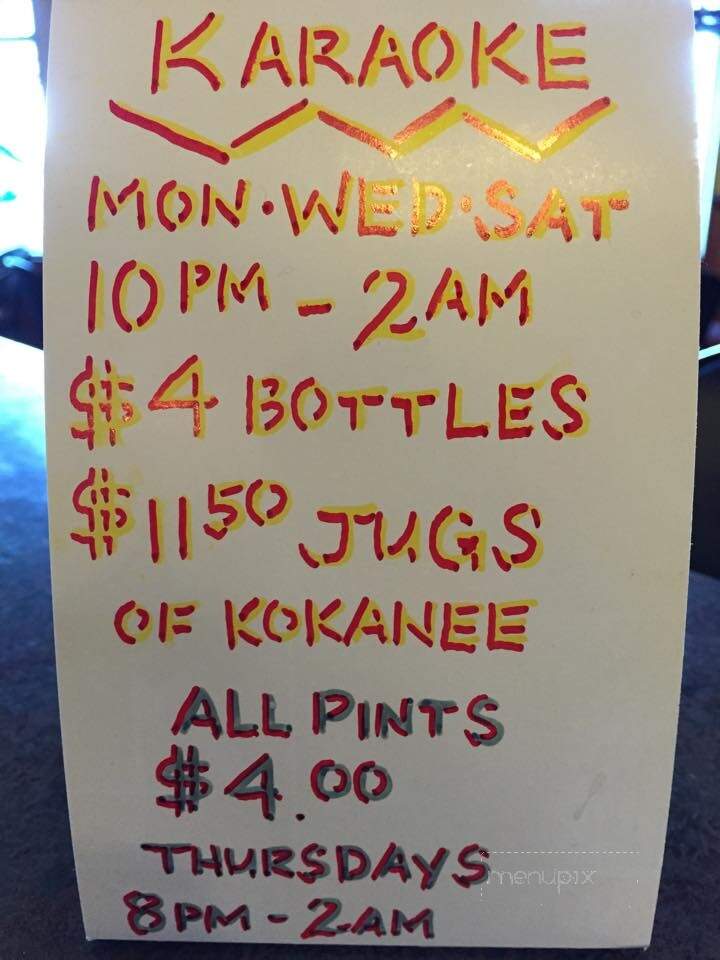 KARAOKE
MON·WED·SAT
10PM - 2AM
$4 BOTTLES
$11 50 JUGS
OF KOKANEE
ALL PINTS
$4.00
THURSDAYS
8PM - 2AM
menupix